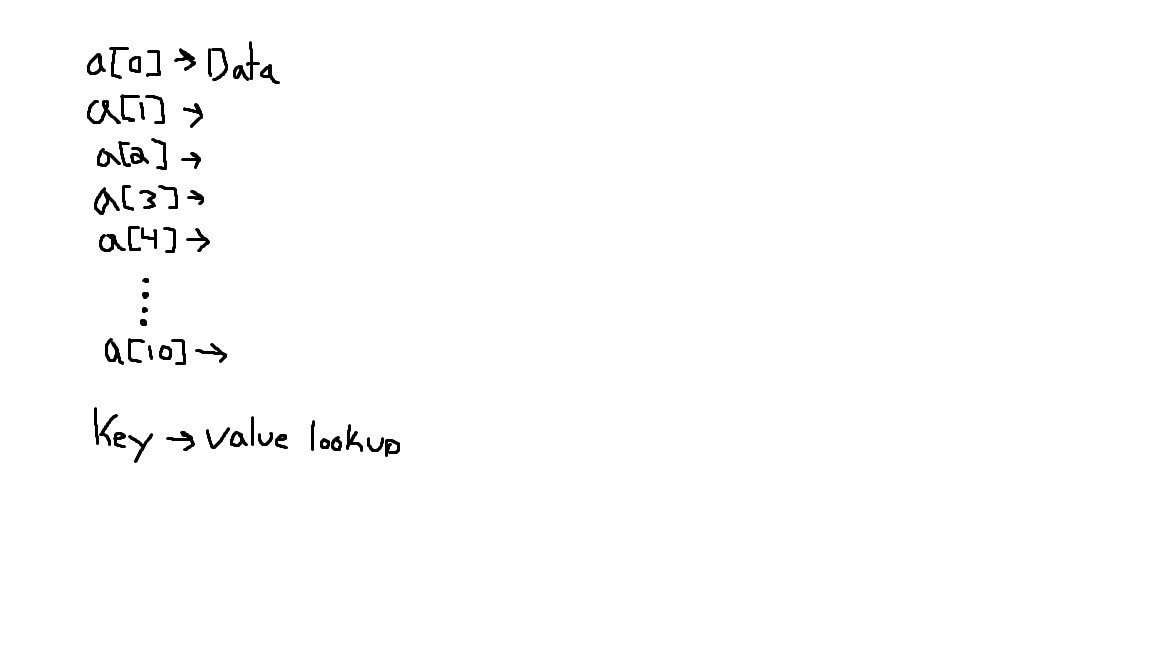 a[0] → Data
a[1] →
a[2] →
a[3] →
a[4] →
⋮
a[10] →
Key → value lookup